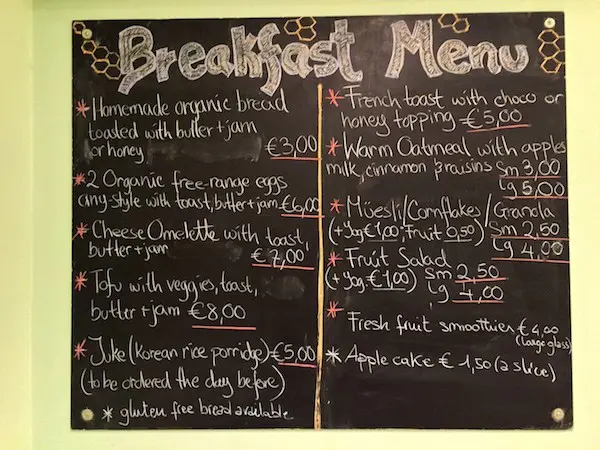 Breakfast Menu
* Homemade organic bread
toasted with butter + jam
or honey €3,00
* 2 Organic free-range eggs
any-style with toast, butter + jam €6,00
* Cheese Omelette with toast,
butter + jam €7,00
* Tofu with veggies, toast,
butter + jam €8,00
* Juke (korean rice porridge) €5,00
(to be ordered the day before)
* gluten free bread available
* French toast with choco or
honey topping €5,00
* Warm Oatmeal with apples
milk, cinnamon & raisins Sm 3,00
Lg 5,00
* Müesli/Cornflakes/Granola
(+ Yog €1,00; Fruit 0,50) Sm 2,50
Lg 4,00
* Fruit Salad
(+ Yog. €1,00) Sm 2,50
Lg 4,00
* Fresh fruit smoothies €4,00
(large glass)
* Apple cake € 1,50 (a slice)